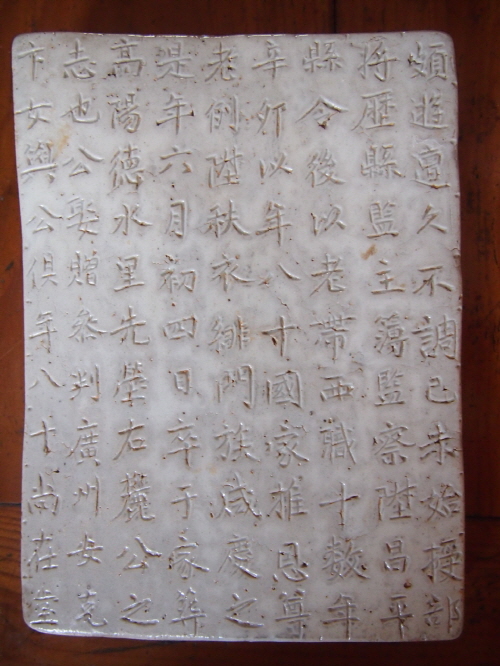 頗遊宦久不調己未始授部
將歷縣監主簿監察陞昌平
縣令後以老帶西職十數年
辛卯以年八十國家推恩尊
老例陞秩衣緋門族咸慶之
是年六月初四日卒于家葬
高陽德水里先塋右麓公之
志也公娶贈參判廣州安克
卞女與公俱年八十尚在堂